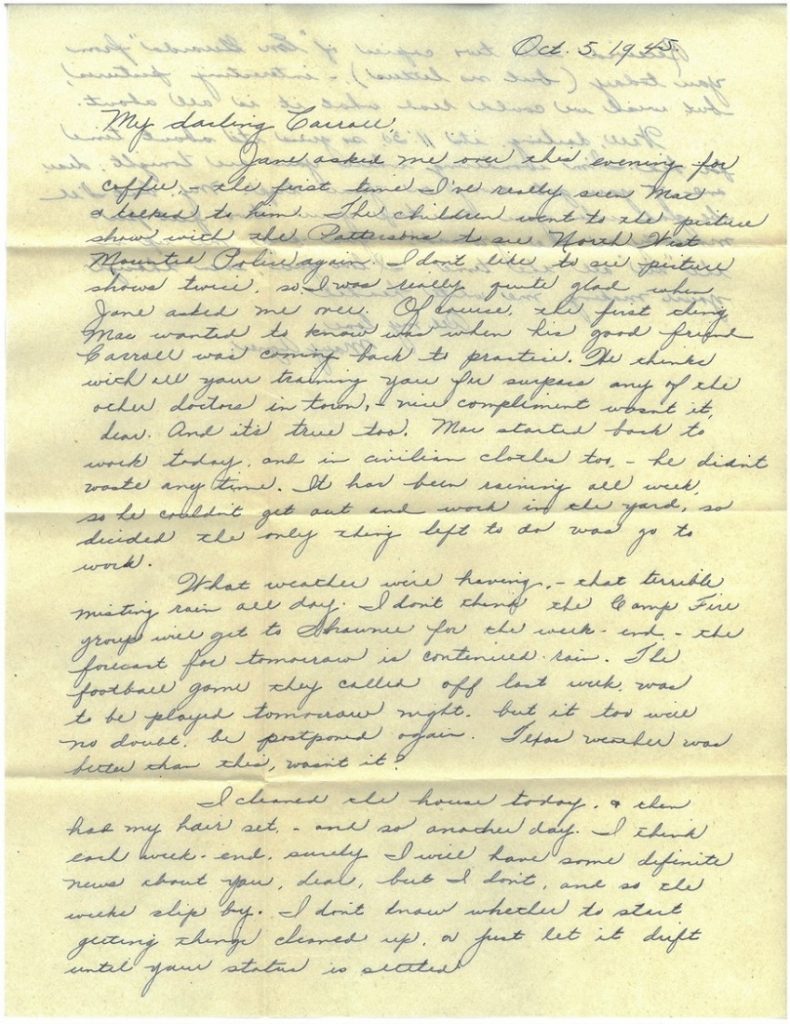 Oct. 5, 1945
My darling Carroll,
Jane asked me over this evening for
coffee, - the first time I've really seen Mac
& talked to him. The children went to the picture
show with the Pattersons to see North West
Mounted Police again. I don't like to see picture
shows twice, so I was really quite glad when
Jane asked me over. Of course, the first thing
Mac wanted to know was when his good friend
Carroll was coming back to practice. He thinks
with all your training you far surpass any of the
other doctors in town, - nice compliment wasn't it,
dear. And it's true too. Mac started back to
work today, and in civilian clothes too, - he didn't
waste any time. It has been raining all week,
so he couldn't get out and work in the yard, so
decided the only thing left to do was go to
work.
What weather we're having, - that terrible
misting rain all day. I don't think the Camp Fire
group will get to Shawnee for the week-end - the
forecast for tomorrow is continued rain. The
football game they called off last week, was
to be played tomorrow night, but it too will
no doubt, be postponed again. Texas weather was
better than this, wasn't it?
I cleaned the house today, & then
had my hair set, - and so another day. I think
each week-end, surely I will have some definite
news about you, dear, but I don't, and so the
weeks slip by. I don't know whether to start
getting things cleaned up, or just let it drift
until your status is settled